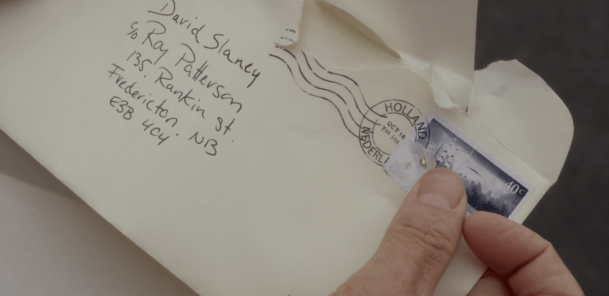 David Slaney
c/o Roy Patterson
135. Rankin st.
Fredericton. NB
E3B 4C4
HOLLAND
OCT 16
NEDERL
40c